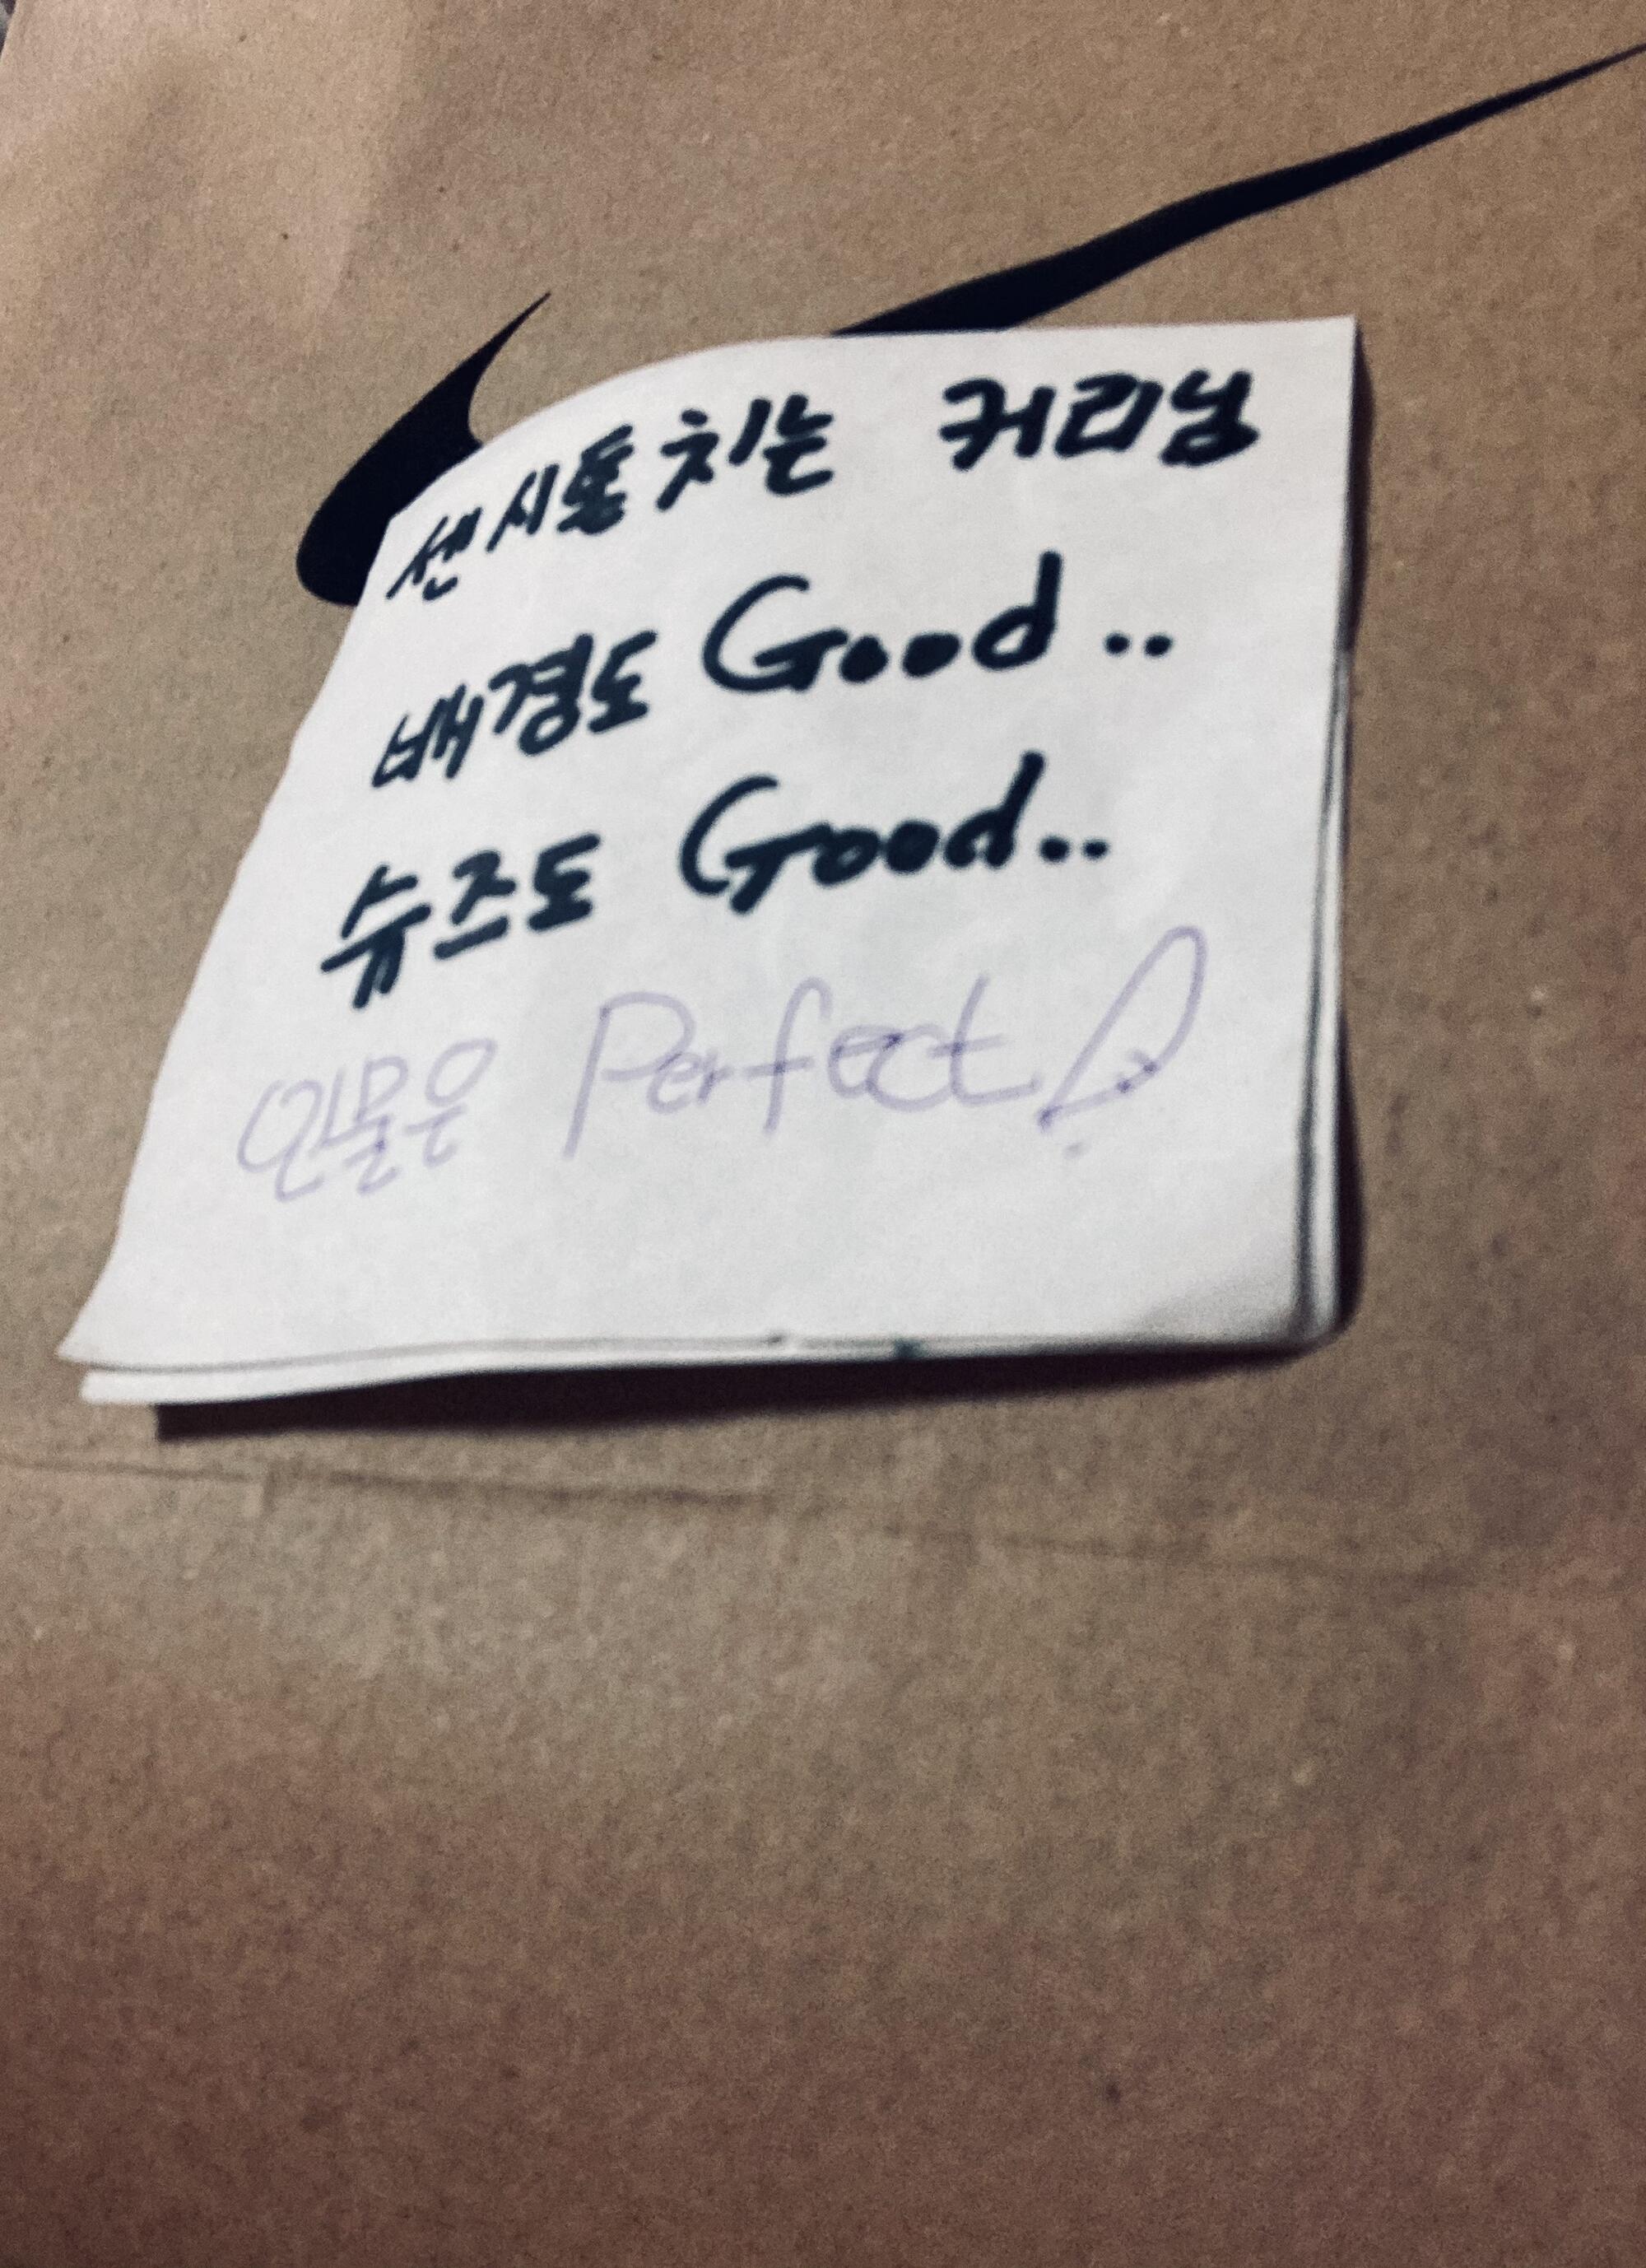 센시통치는 커리남
배경도 Good..
슈즈도 Good..
인물은 Perfect!